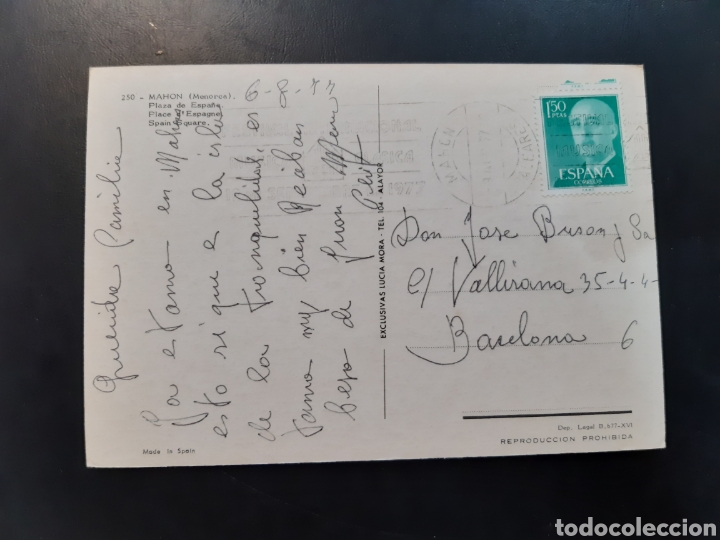 250 - MAHON (Menorca).
Plaza de España.
Place d'Espagne.
Spain Square.
6-8-77
Querida Familia
Ya estamo en Mahon
esto si que e la isla
de la tranquilidad, es
tamo muy bien Reciban
beso de Juan
EXCLUSIVAS LUCIA MORA - TEL. 104 - ALAYOR
1,50
PTAS
ESPAÑA
CORREOS
MAHON
BALEARES
1977
Don Jose Buson y Sa
c/ Vallirana 35-4-4-
Barcelona 6
Made in Spain
Dep. Legal B. 677-XVI
REPRODUCCION PROHIBIDA
todocoleccion